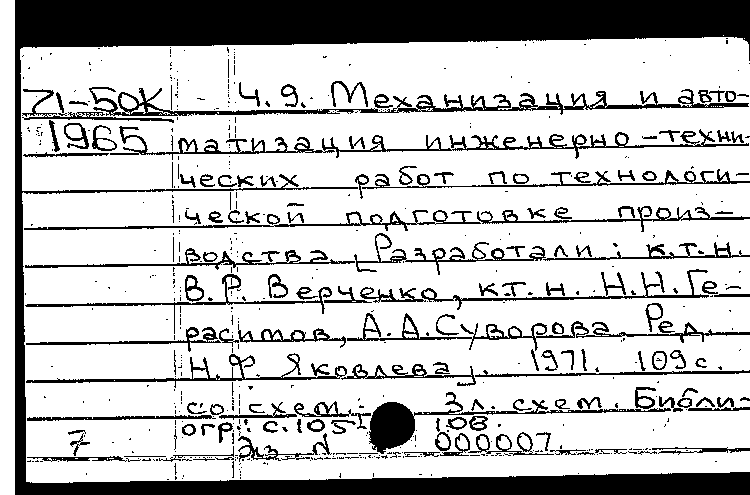 71-50К Ч.9. Механизация и авто-
1965 матизация инженерно-техни-
ческих работ по технологи-
ческой подготовке произ-
водства. [Разработали: к.т.н.
В.Р. Верченко, к.т.н. Н.Н.Ге-
расимов, А.А.Суворова. Ред.
Н.Ф. Яковлева]. 1971. 109с.
со схем.; 3л. схем. Библи-
огр.: с.105- 108.
7 Экз. N 000007.